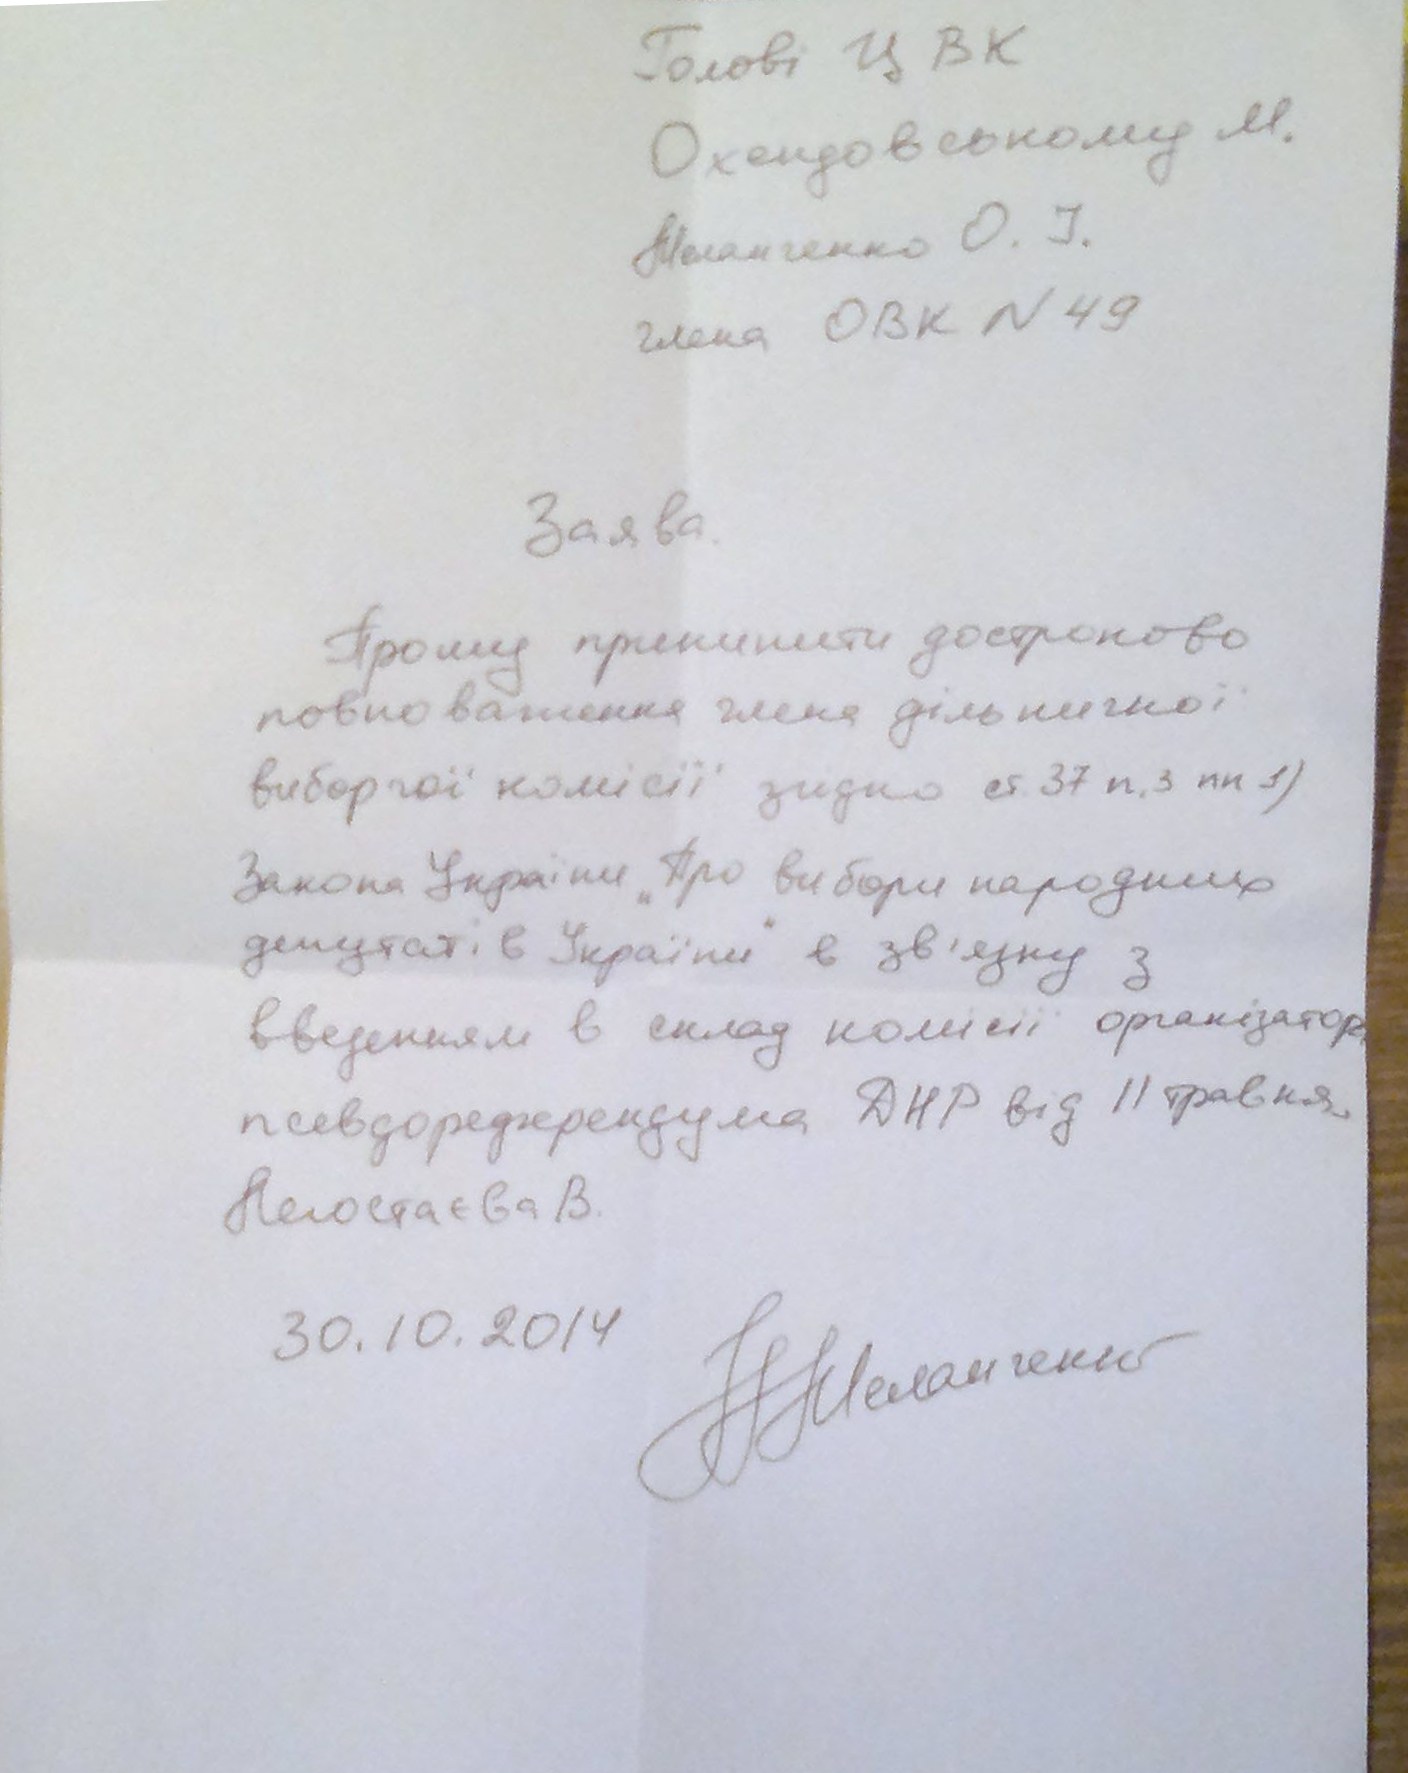 Голові ЦВК
Охендовському М.
Меланченко О. І.
члена ОВК N 49
Заява.
Прошу припинити достроково
повноваження члена дільничної
виборчої комісії згідно ст. 37 п. 3 пп 1)
Закона України „Про вибори народних
депутатів України" в зв'язку з
введенням в склад комісії організатора
псевдореферендума ДНР від 11 травня
В.
30.10.2014
Меланченко